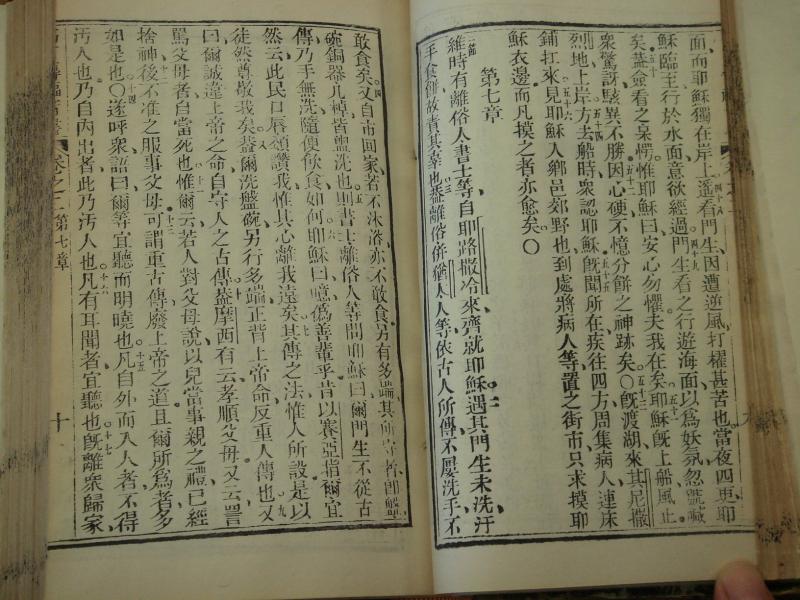 面而耶穌獨在岸上遙看門生因遭逆風打櫂甚苦也當夜四更耶
穌臨至行於水面意欲經過門生看之行遊海面以為妖氛忽號喊
矣葢僉看之杲愕惟耶穌曰安心勿懼夫我在矣耶穌旣上船風止
眾驚訝駭異不勝因心硬不憶分餅之神跡矣〇旣渡湖來其尼撒
烈地上岸方去船時眾認耶穌旣聞所在疾往四方周集病人連床
鋪扛來見耶穌人鄉邑郊野也到處將病人等置之街市只求摸耶
穌衣邊而凡摸之者亦愈矣〇
第七章
維時有離俗人書士等自耶路撒冷來齊就耶穌遇其門生未洗汙
手食餅故責其辜也葢離俗併猶太人等依古人所傳不屢洗手不
敢食矣又自市回家若不沐浴亦不敢食另有多端其所守拵卽盥
碗銅器几棹皆盥洗也則書士離俗人等問耶穌曰爾門生不從古
傳乃手無洗隨便飲食如何耶穌曰噫僞善輩乎肯以賽亞指爾宜
然云此民口唇頌讚我惟其心離我遠矣其傳之法惟人所設是以
徒然尊敬我矣葢爾洗盤碗另行多端正背上帝命反重人傳也又
曰爾誠違上帝之命自守人之古傳葢摩西有云孝順父母又云詈
罵父母者自當死也惟爾云若人對父母說以兒當事親之禮已經
捨神後不准之服事父母可謂重古傳廢上帝之道且爾所為者多
如是也〇遂呼眾語曰爾等宜聽而明曉也凡自外而入人者不得
汚人也乃自內出者此乃汚人也凡有耳聞者宜聽也旣離眾歸家
卷之二 第七章
十